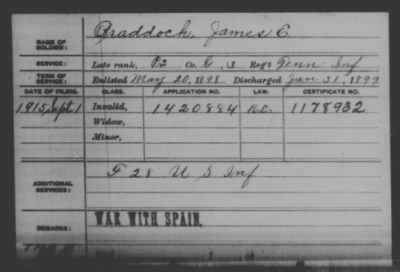 NAME OF SOLDIER: Braddock, James E.
SERVICE: Late rank, Co. G, 3 Reg't Tenn Inf
TERM OF SERVICE: Enlisted May 20, 1898 Discharged Jan 31, 1899
DATE OF FILING. CLASS. APPLICATION NO. LAW. CERTIFICATE NO.
1915, Sept 1 Invalid, 1420884 1178932
Widow,
Minor,
ADDITIONAL SERVICES: F 28 U S Inf
REMARKS: WAR WITH SPAIN.